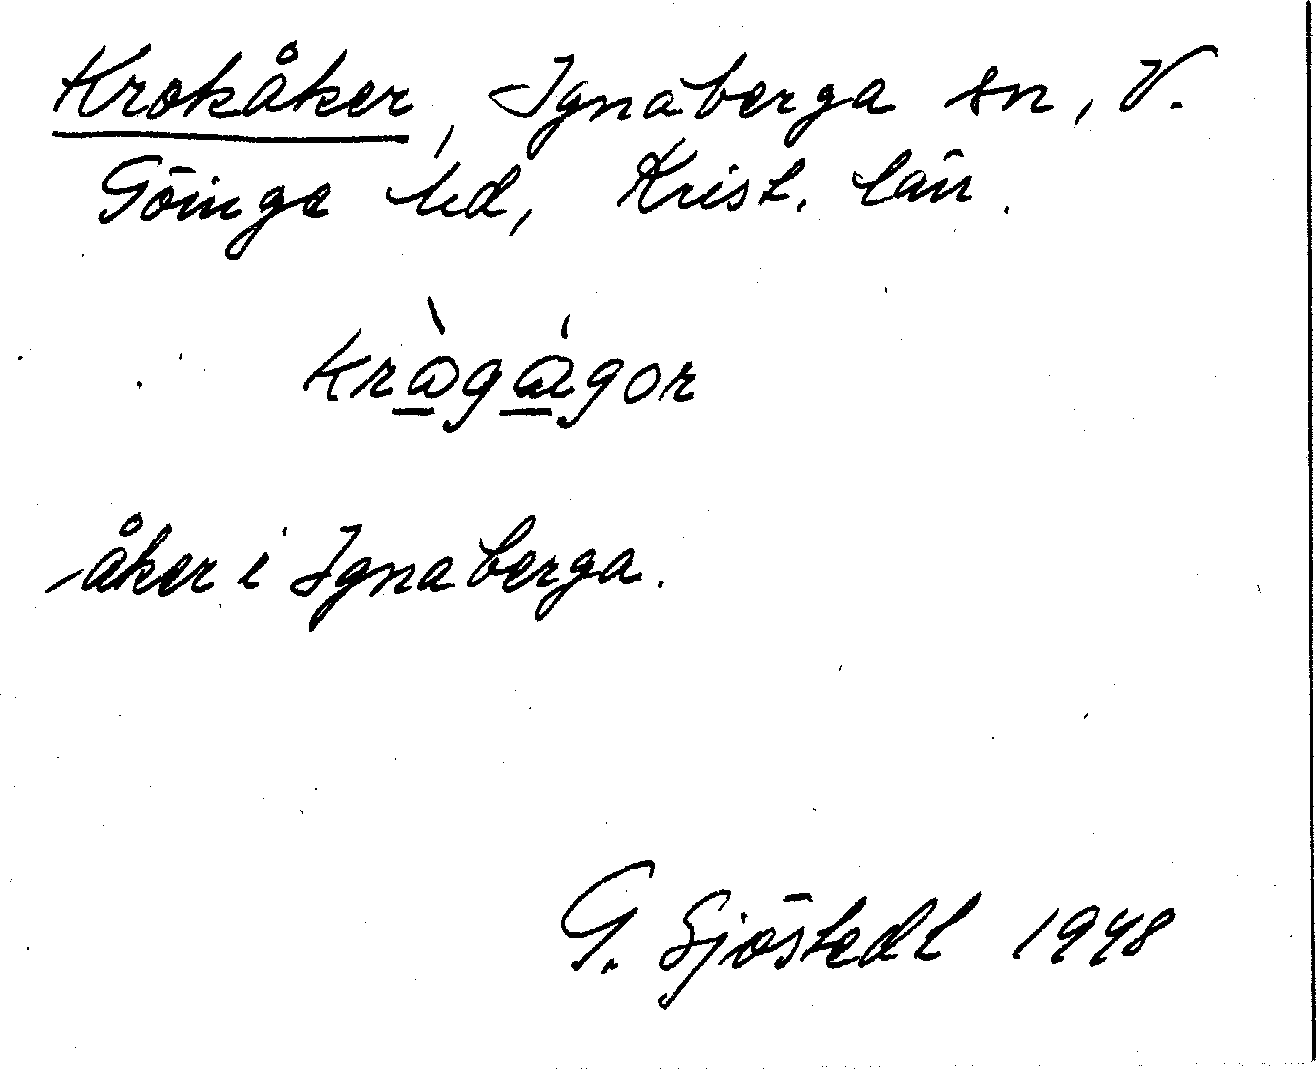 Krokåker, Ignaberga sn, V.
Göinge hd, Krist. län.
krà̱gá̱gor
åker i Ignaberga.
G. Sjöstedt 1948